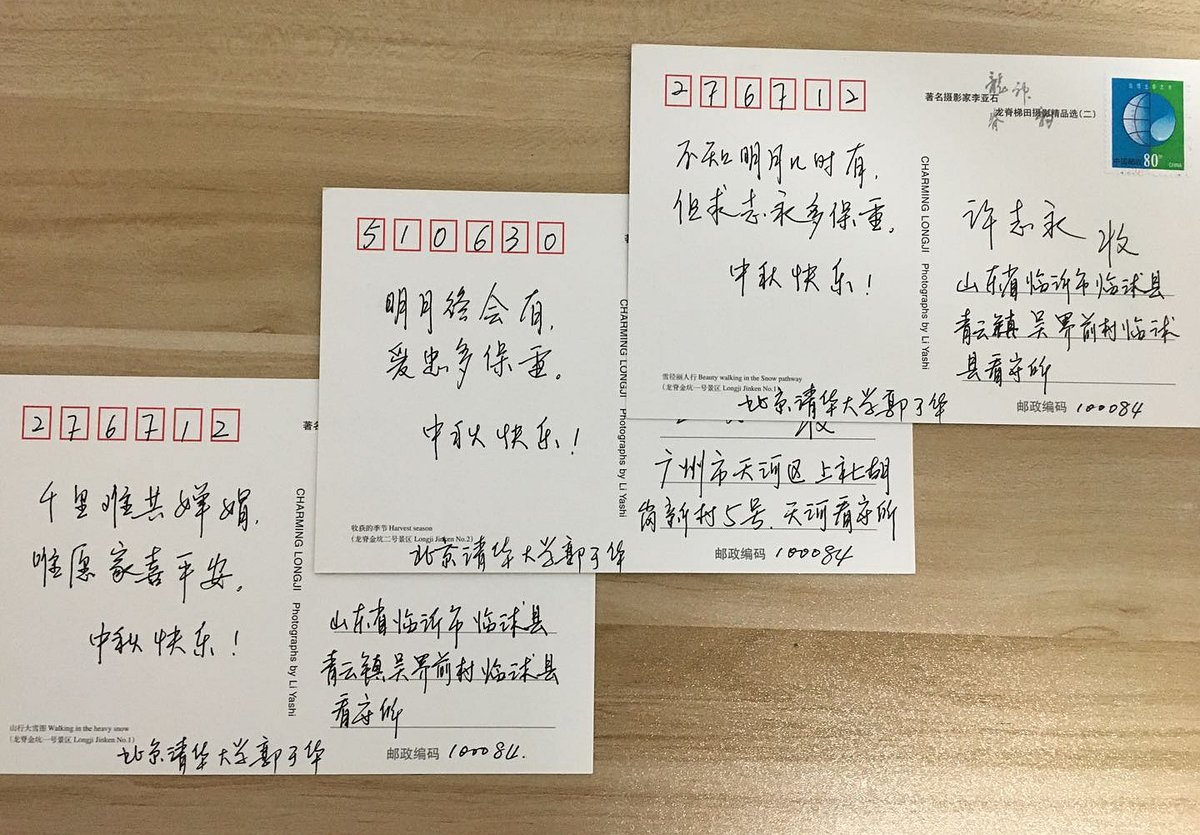 276712
千里难共婵娟，
唯愿家喜平安。
中秋快乐！
山行大雪图 Walking in the heavy snow
（龙脊金坑一号景区 Longji Jinken No.1）
北京清华大学郭于华
著名
CHARMING LONGJI Photographs by Li Yashi
山东省临沂市临沭县
青云镇吴界前村临沭县
看守所
邮政编码 100084.
510630
明月终会有，
爱忠多保重。
中秋快乐！
收获的季节 Harvest season
（龙脊金坑二号景区 Longji Jinken No.2）
北京清华大学郭于华
CHARMING LONGJI Photographs by Li Yashi
收
广州市天河区上社七胡
岗新村5号，天河看守所
邮政编码 100084
276712
不知明月几时有，
但求志永多保重。
中秋快乐！
雪径丽人行 Beauty walking in the Snow pathway
（龙脊金坑一号景区 Longji Jinken No.1）
北京清华大学郭于华
著名摄影家李亚石
龙脊梯田摄影精品选（二）
CHARMING LONGJI Photographs by Li Yashi
中国邮政 80分 CHINA
许志永 收
山东省临沂市临沭县
青云镇吴界前村临沭
县看守所
邮政编码 100084